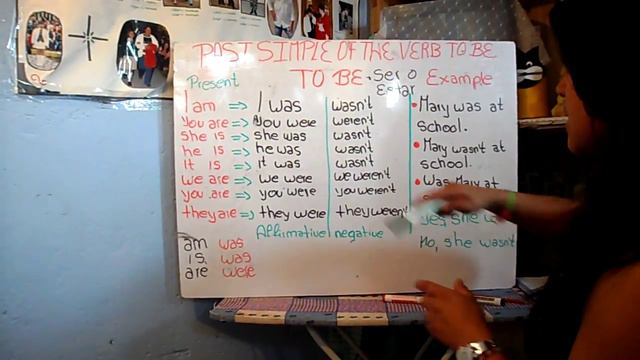 PAST SIMPLE OF THE VERB TO BE
Present TO BE. Ser o Estar Example
I am => I was wasn't
You are => You were weren't
She is => she was wasn't
he is => he was wasn't
it is => it was wasn't
we are => we were we weren't
you are => you were you weren't
they are => they were they weren't
Affirmative negative
am was
is was
are were
• Mary was at
school.
• Mary wasn't at
school.
• Was Mary at
yes, she
No, she wasn't